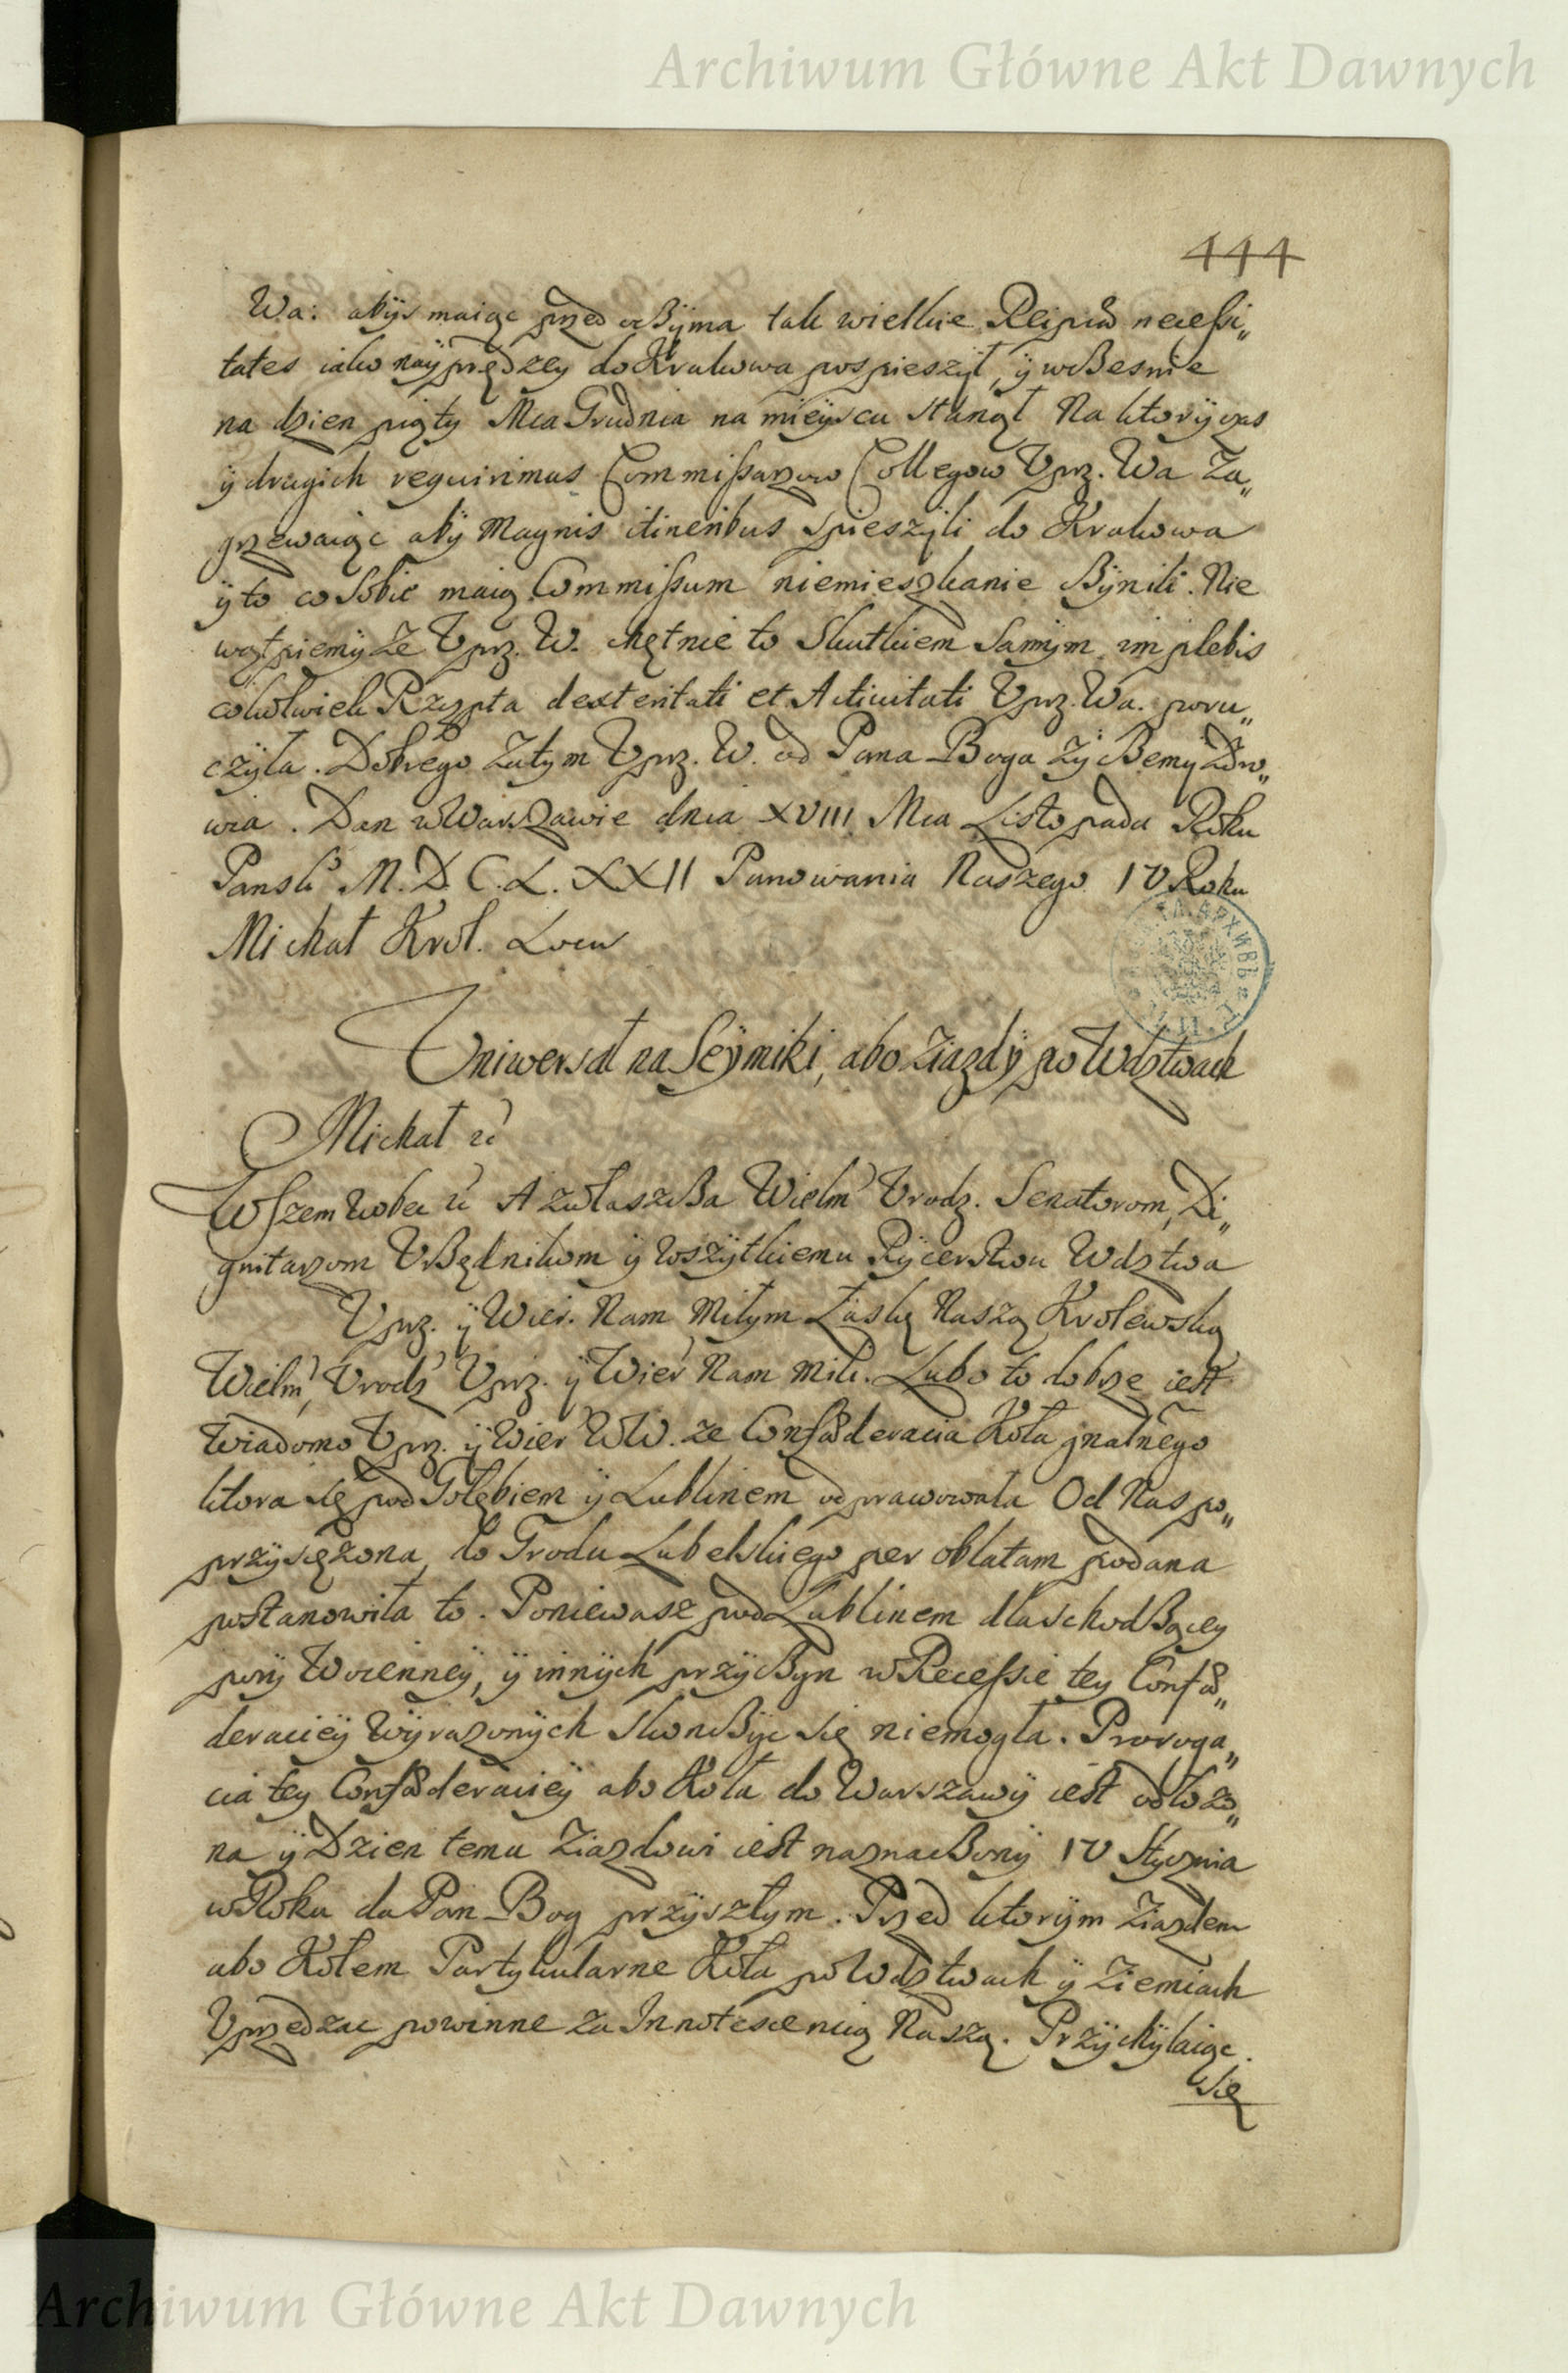 Archiwum Główne Akt Dawnych
444
Wa: abÿs maiąc przed oczÿma tak wielkie Reipub necessi„
tates iako naÿprędzey do Krakowa pospieszÿł, ÿ wczesnie
na dzien piąty Mca Grudnia na mieÿscu stanął Na ktorÿ czas
ÿ drugich requirimus Commissarzow Collegow Uprz. Wa Za„
grzewaiąc abÿ Magnis itineribus spieszÿli do Krakowa
ÿ to co sobie maią Commissum niemieszkanie czÿnili. Nie
wątpiemÿ Ze Uprz. W. chętnie to Skutkiem Samÿm implebis
cokolwiek Rzeczpta dexteritati et Activitati Uprz. Wa. poru„
czÿła. Dobrego Zatym Uprz. W. od Pana Boga Zÿczemÿ Zdro„
wia. Dan w Warszawie dnia XVIII Mca Listopada Roku
Pansk° M.D.C.L.XXII Panowania Naszego IV Roku
Michał Krol. Locu
Uniwersał na Seÿmiki, abo Ziazdÿ po Wdztwach
Michał etc
Wszem Wobec etc A zwłaszcza Wielm Urodz. Senatorom, Di„
gnitarzom Urzędnikom ÿ wszÿtkiemu Rÿcerstwu Wdztwa
Uprz. ÿ Wier. Nam Miłym Łaskę Naszą Krolewską
Wielm, Urodz Uprz. ÿ Wier Nam Mili. Lubo to dobrze iest
Wiadomo Uprz. ÿ Wier WW. ze Confœderacia Koła gnalnego
ktora się pod Gołębiem ÿ Lublinem odprawowała Od Nas po„
przÿsiężona, do Grodu Lubelskiego per oblatam podana
postanowiła to. Poniewasz pod Lublinem dla schodzącey
porÿ Woienneÿ, ÿ innÿch przÿczyn w Recessie tey Confœ„
deracieÿ Wÿrazonÿch skonczÿc się niemogła. Proroga„
cia tey Confœderacieÿ abo Koła do Warszawÿ iest odłożo„
na ÿ Dzien temu Ziazdowi iest naznaczonÿ IV Stycznia
w Roku da Pan Bog przÿszłym. Przed ktorÿm Ziazdem
abo Kołem Partykularne Koła po Wdztwach ÿ Ziemiach
Uprzedzac powinne za Innotescencią Naszą. Przÿchÿlaiąc
Się
Archiwum Główne Akt Dawnych